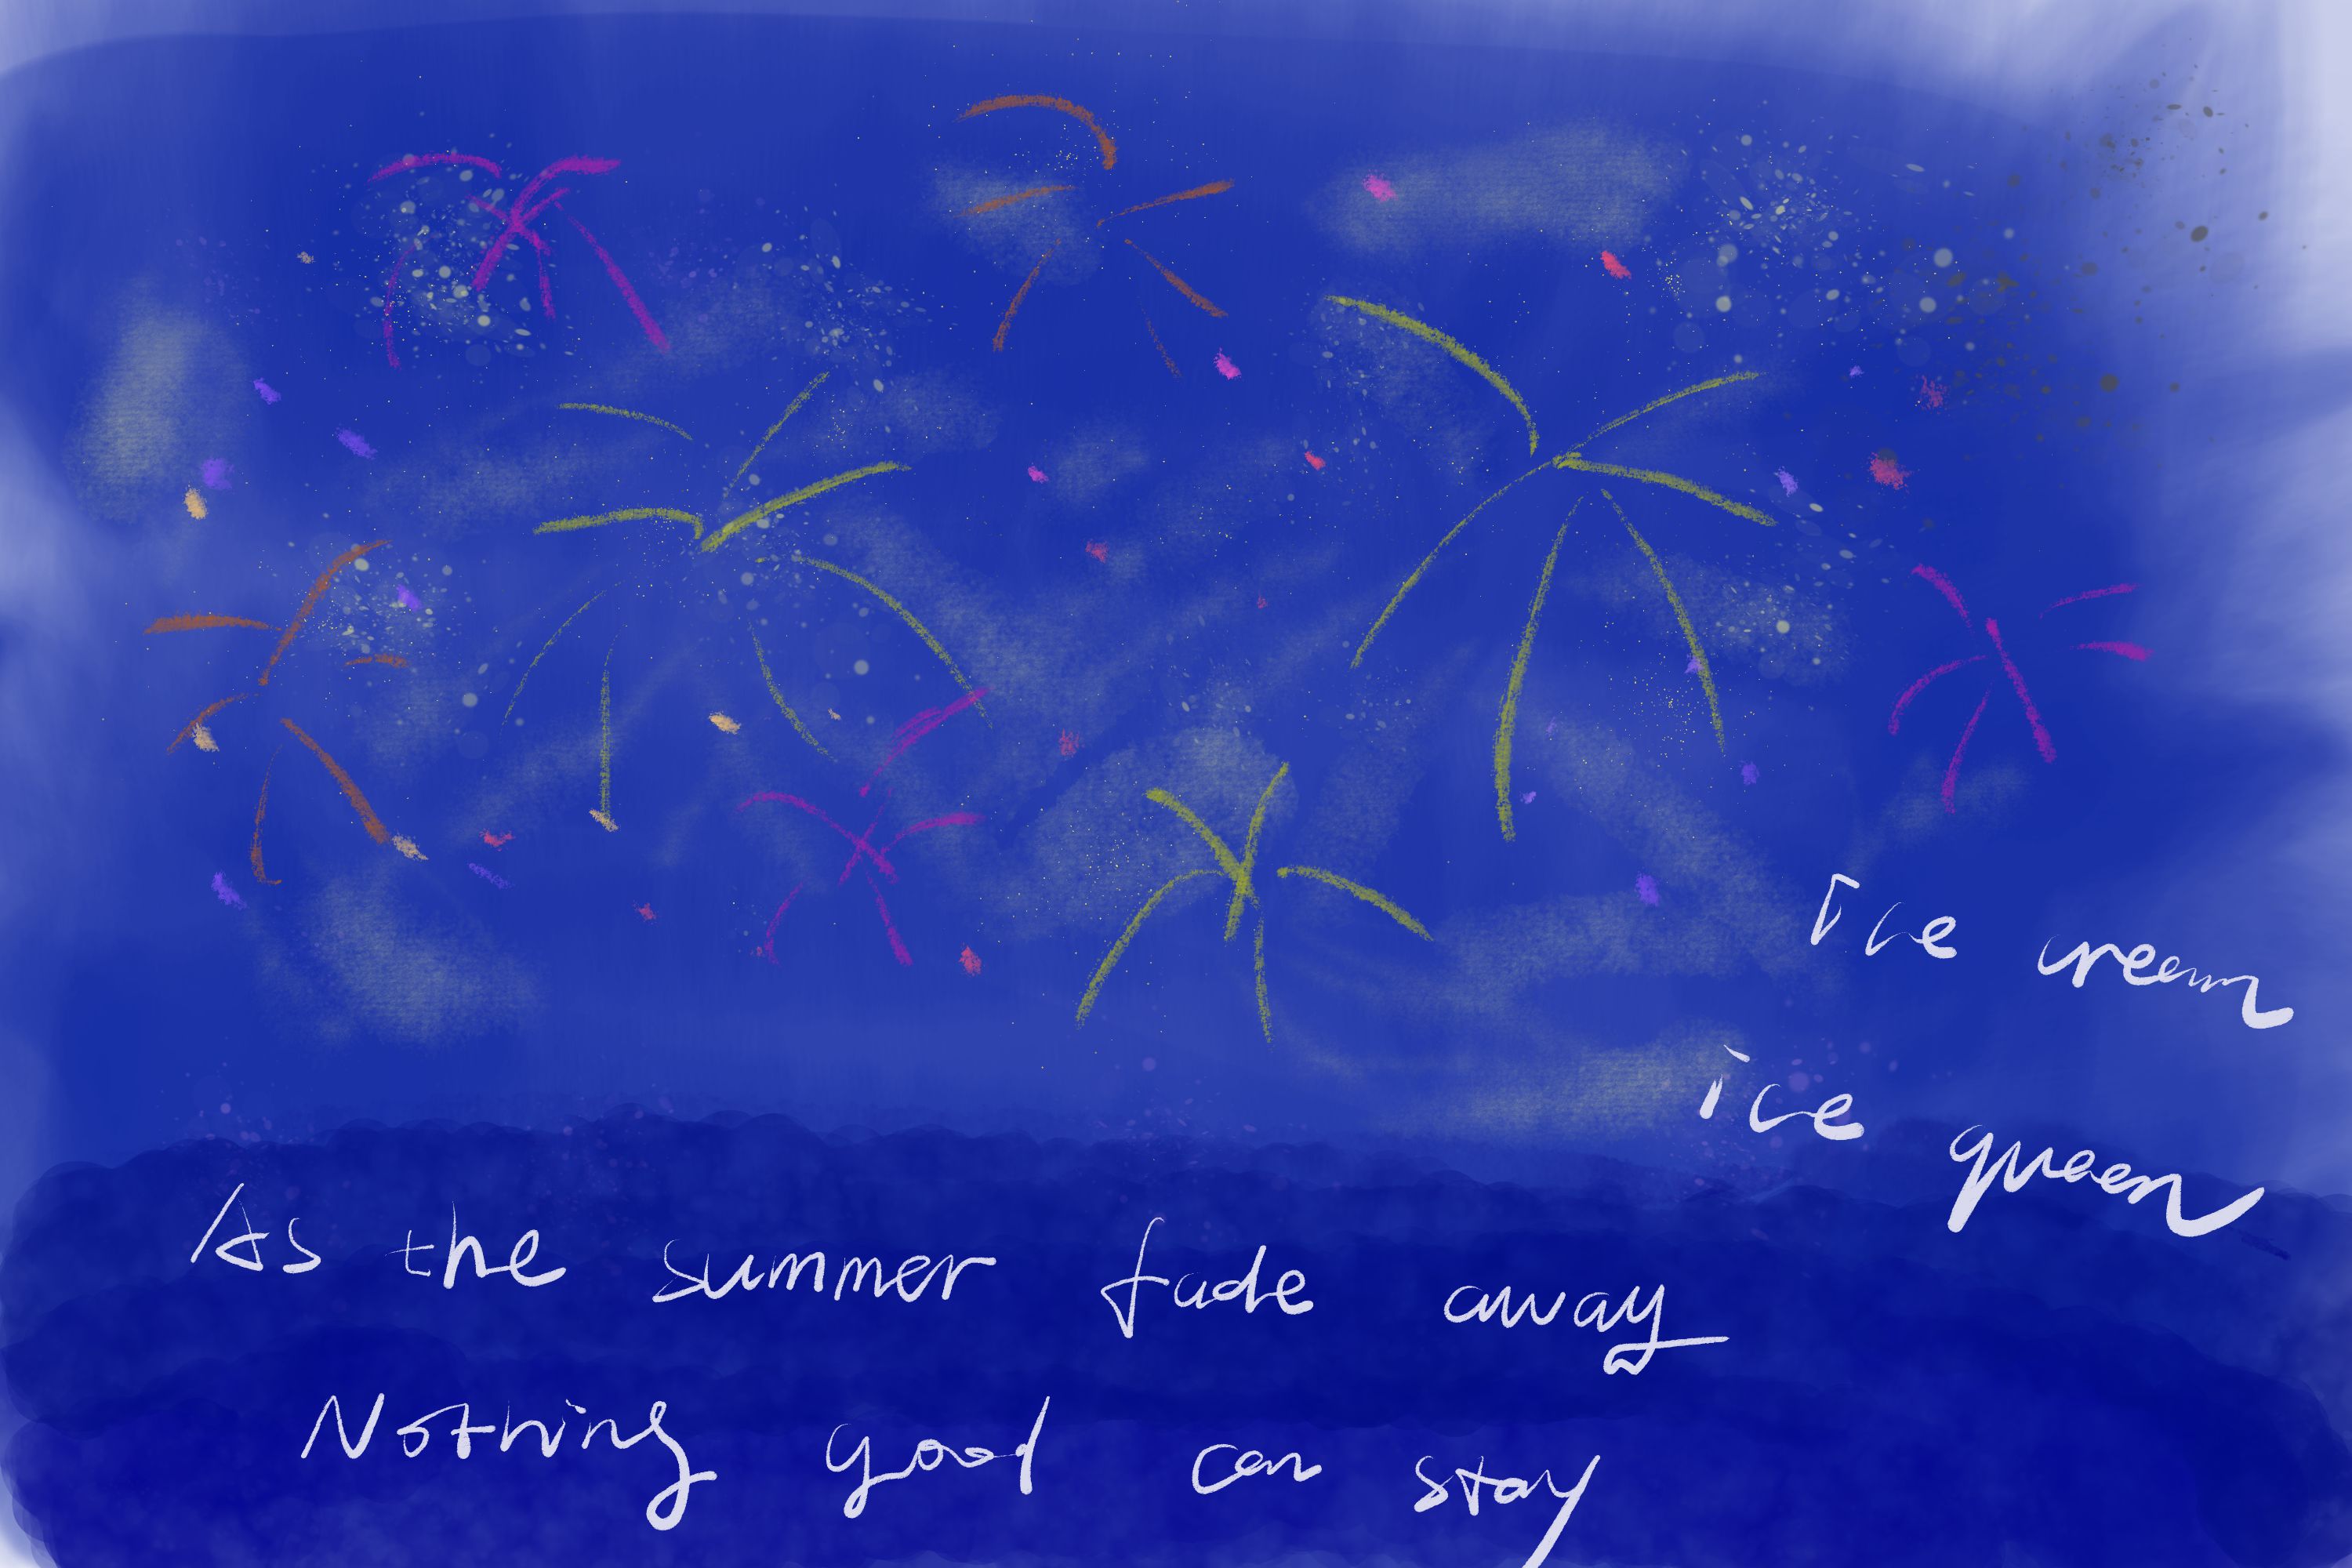 Ice cream
ice queen
As the summer fade away
Nothing good can stay